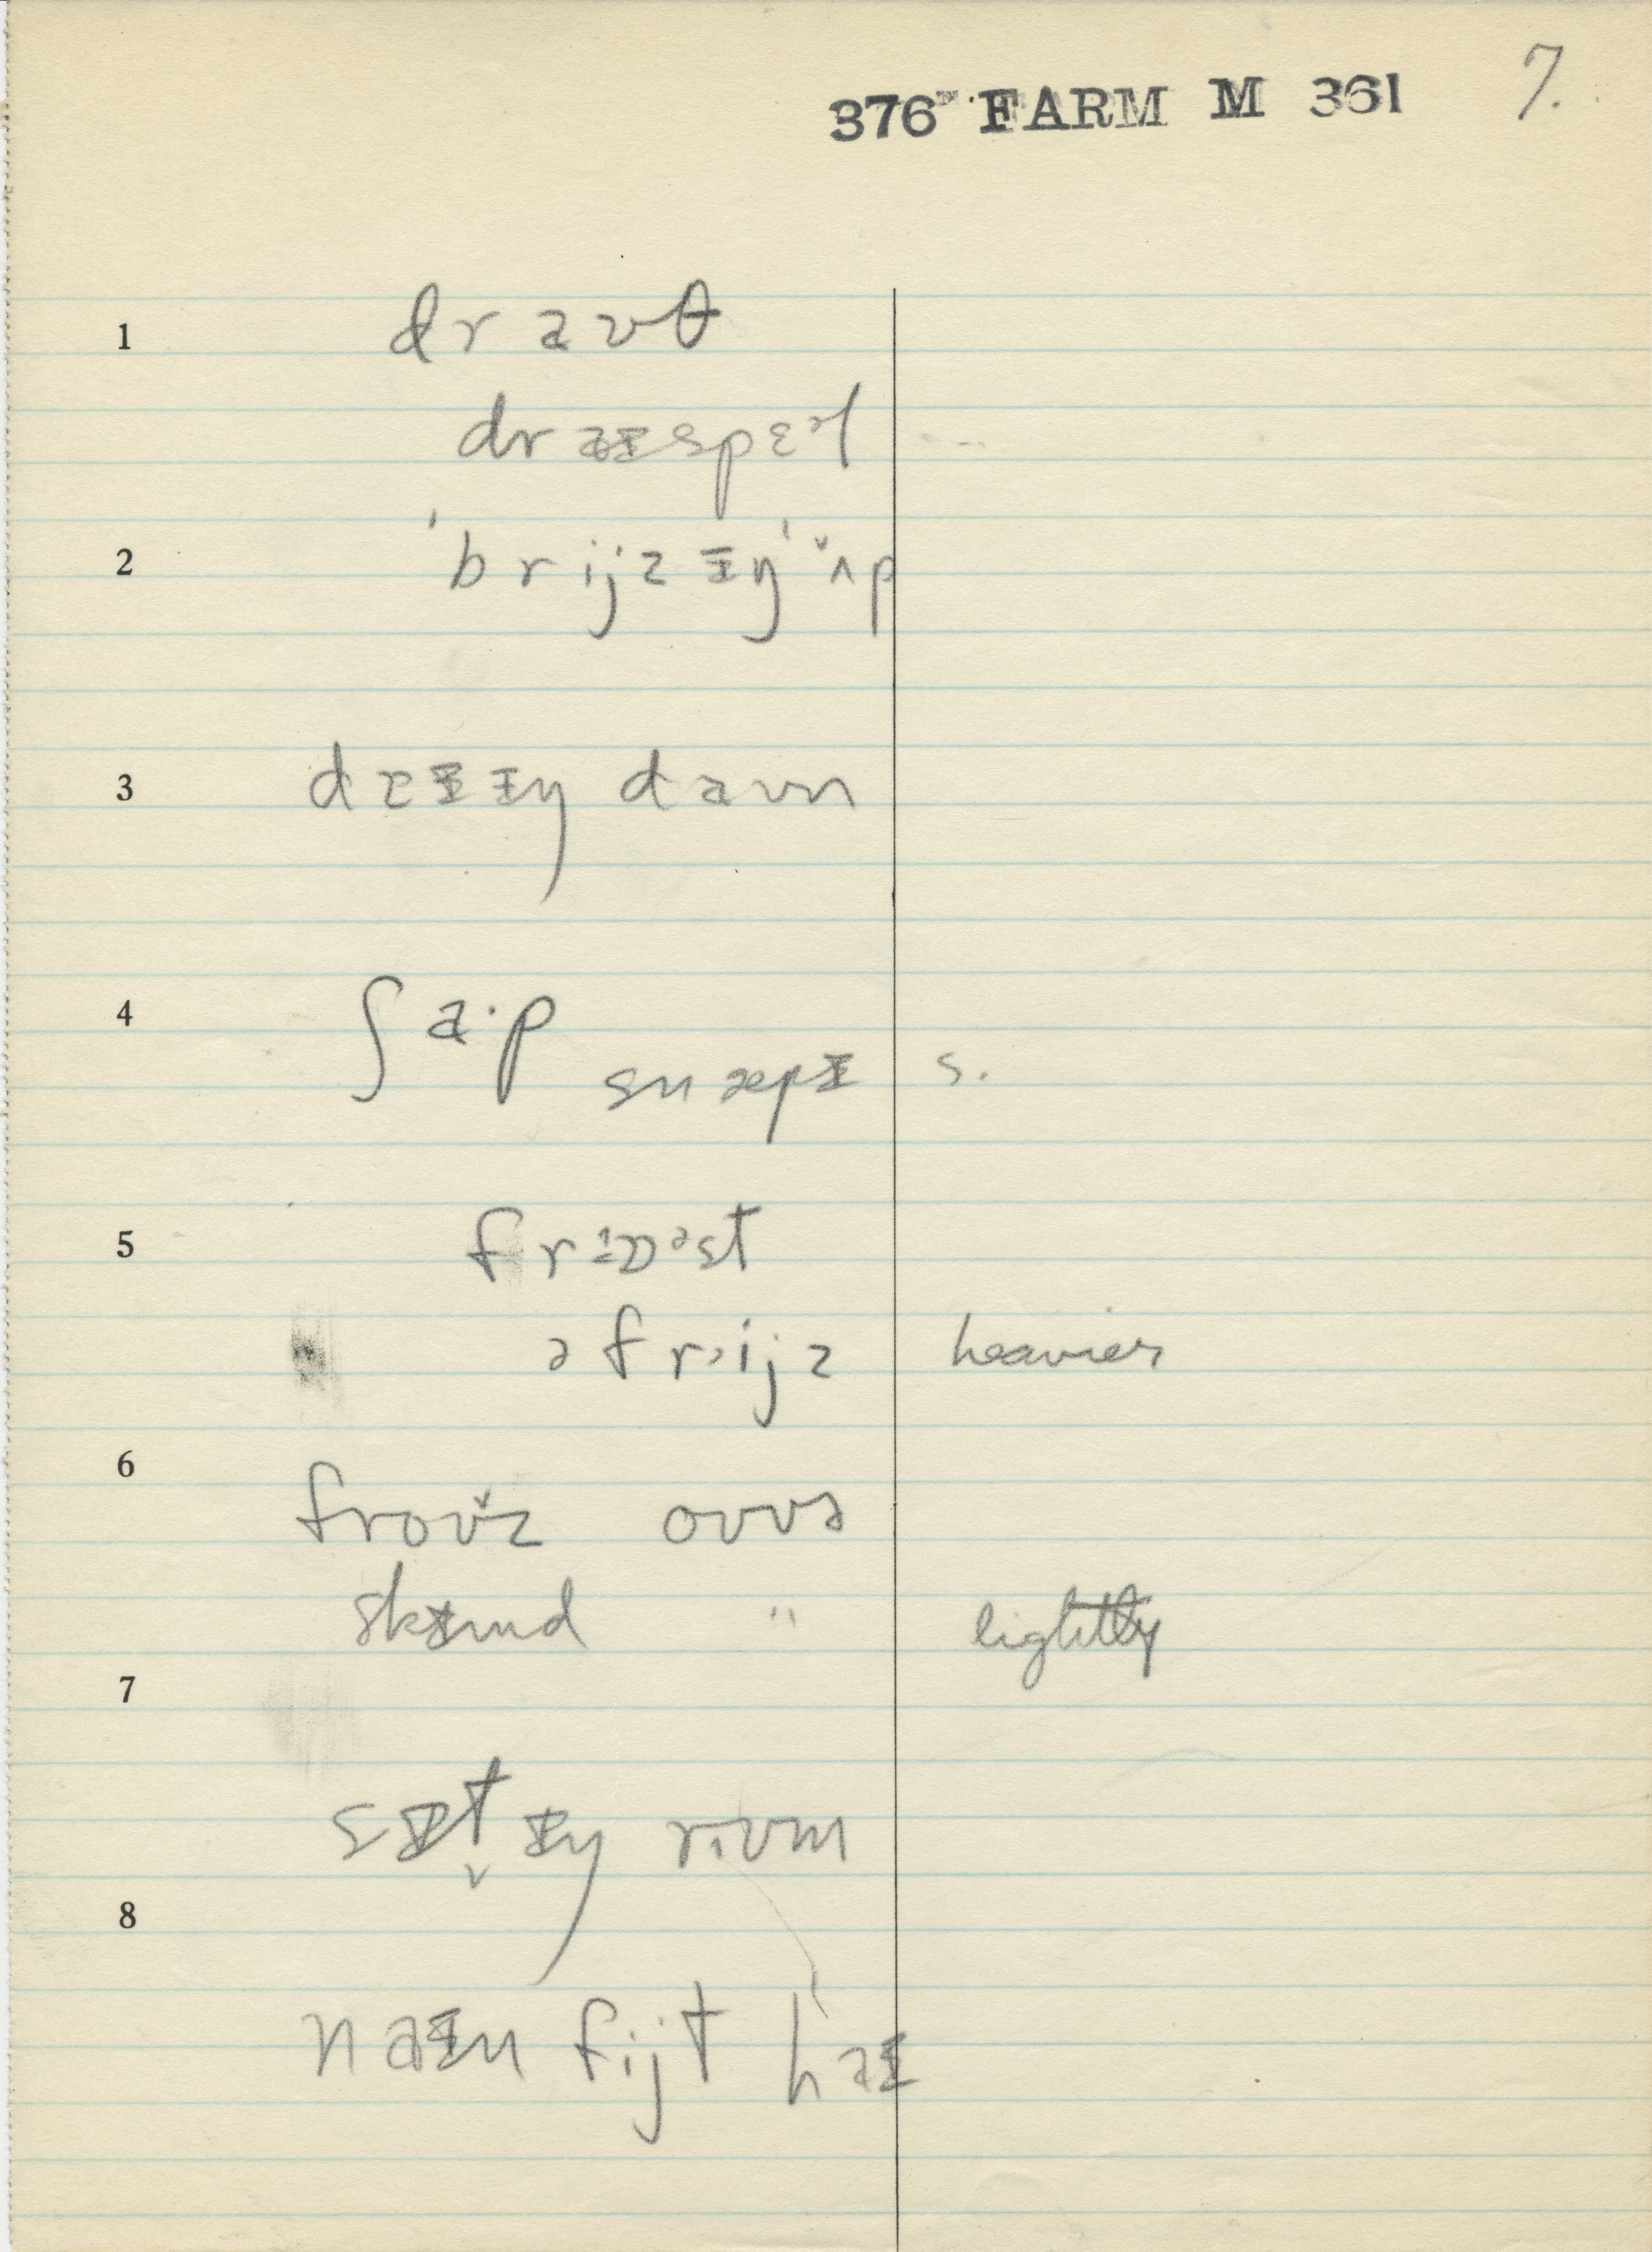 376 FARM M 361 7.
1 draᴜθ
draɪspɛᵊl
2 ˈbrijzɪŋ ˈʌp
3 daɪɪŋ daʊn
4 ʃa·p
snæpɪ s.
5 frɒᵊst
ə frijz heavier
6 froʊz oʊvə
skɪmd " lightly
7
sɪt̬ɪŋ rʊum
8
naɪn fijt haɪ